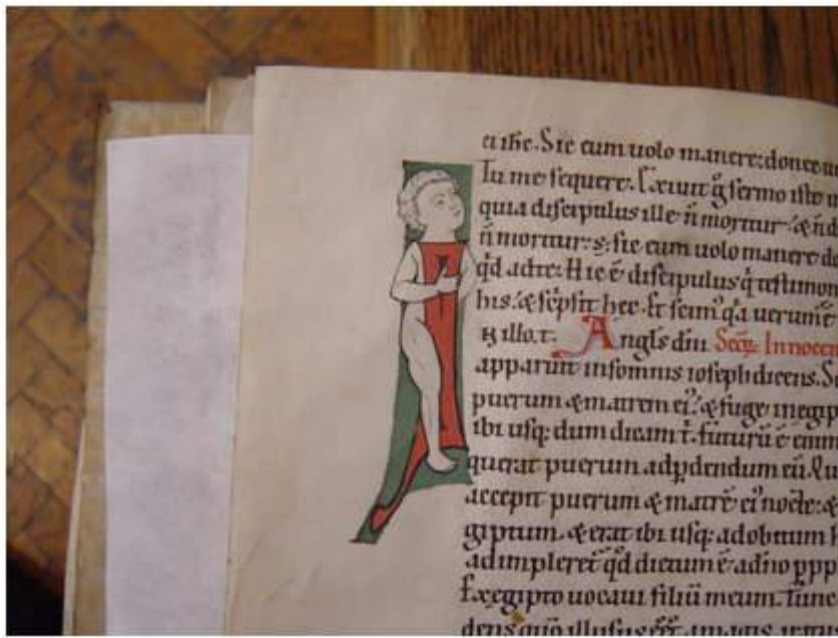 ei ihc. Sic cum uolo manere: donec ue
Tu me sequere. Exiuit g̊ sermo iste
quia discipulus ille ñ moritur. & ñ d
ñ moritur: s; sic cum uolo manere do
qd̓ ad te: Hic ē discipulus q̓ testimon
his. & scpsit hec. Et scim᷒ qa uerum ē
illo.t. Angls dñi Secd̃ Innocen
apparuit in somnis ioseph dicens. Su
puerum & matrem ei᷒. & fuge in egip
ibi usq; dum dicam t̓. futurū ē enim
querat puerum ad pdendum eū. Qu
accepit puerum & matrē ei᷒ nocte: &
giptum. & erat ibi usq; ad obitum h
adimpleret᷑ qd̓ dictum ē a dño p pp
Ex egipto uocaui filiū meum. Tunc
dens qm̃ illusus magis